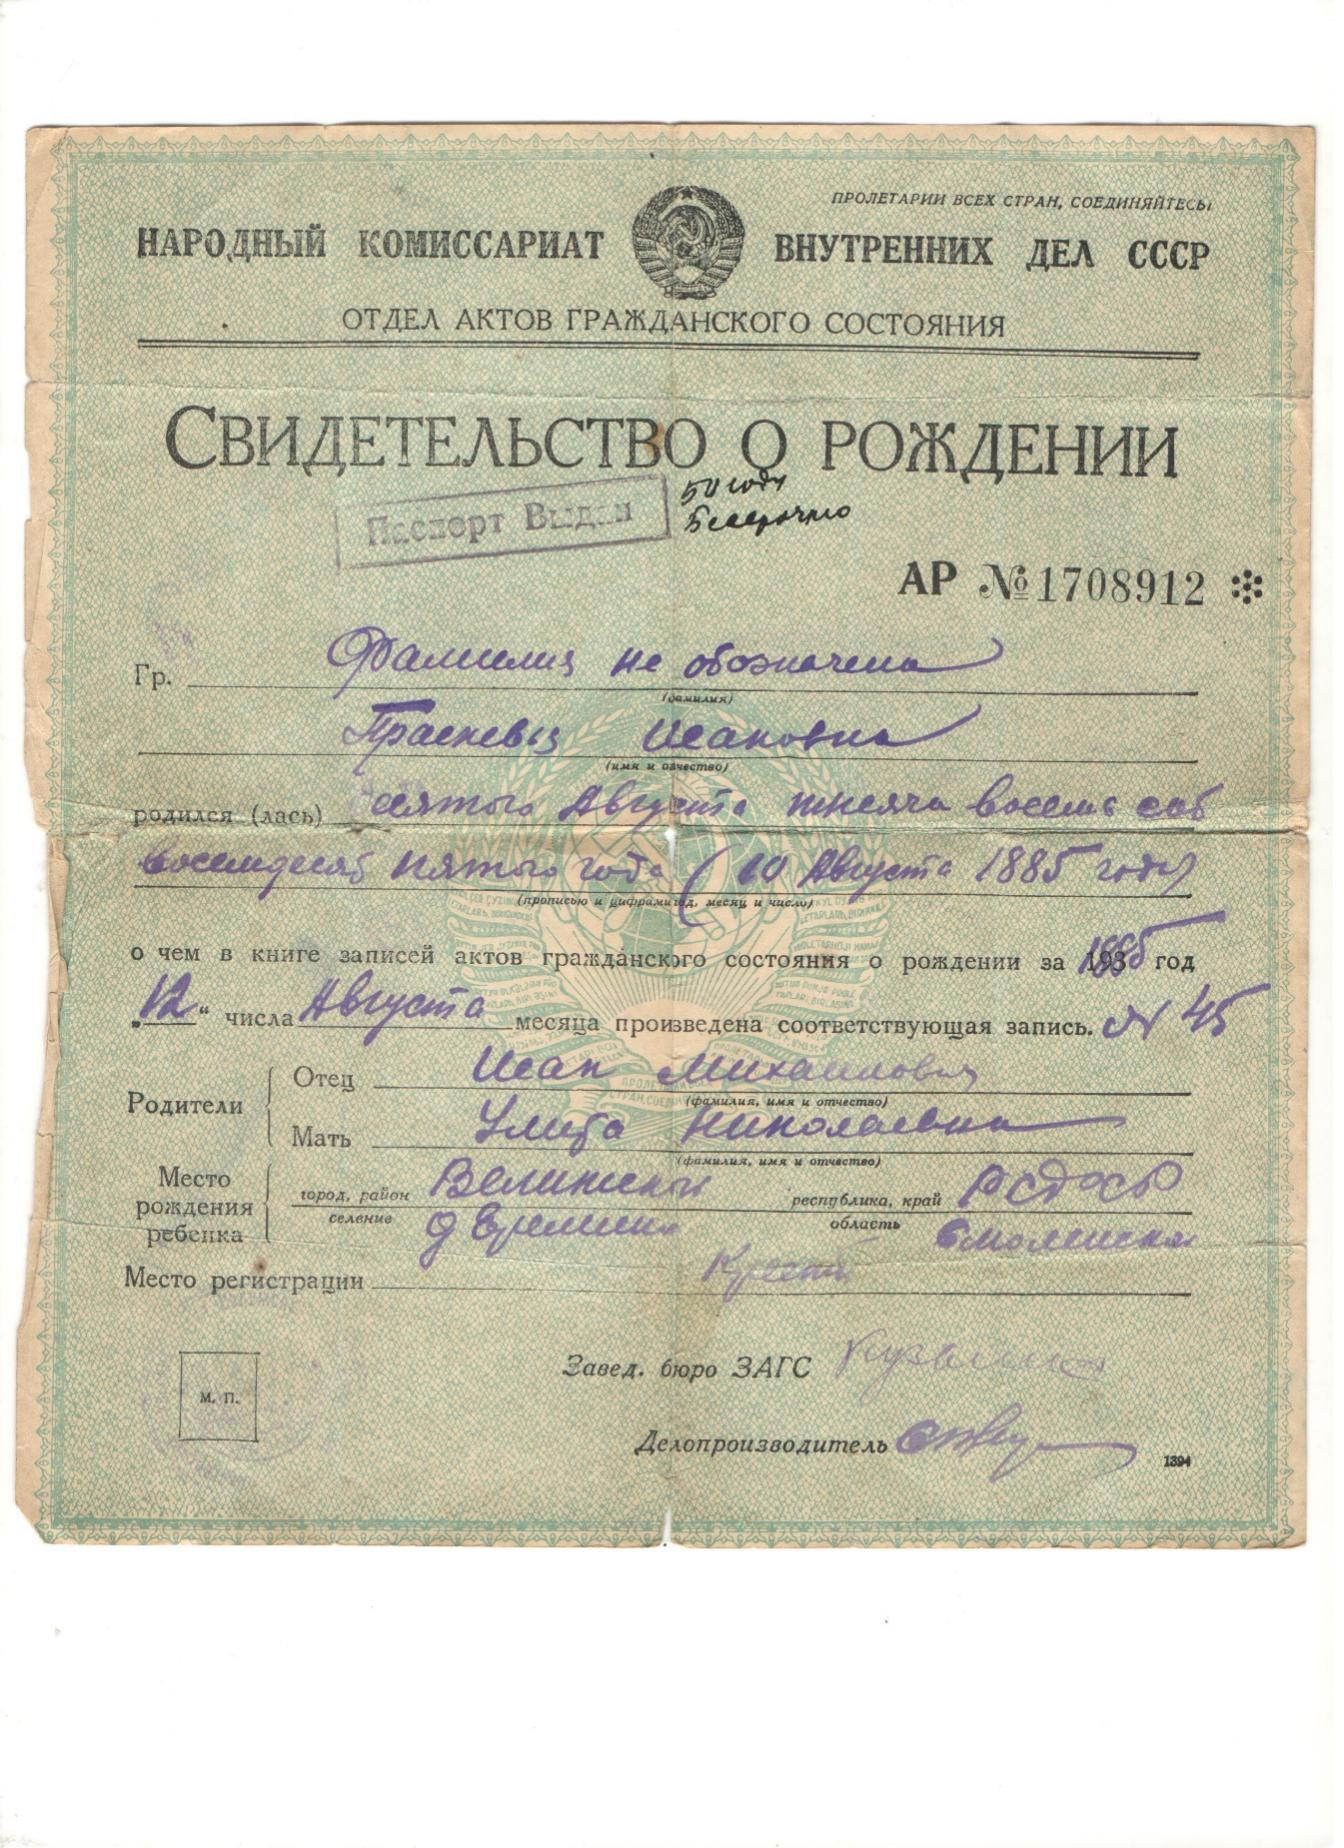 ПРОЛЕТАРИИ ВСЕХ СТРАН, СОЕДИНЯЙТЕСЬ!
НАРОДНЫЙ КОМИССАРИАТ ВНУТРЕННИХ ДЕЛ СССР
ОТДЕЛ АКТОВ ГРАЖДАНСКОГО СОСТОЯНИЯ
СВИДЕТЕЛЬСТВО О РОЖДЕНИИ
Паспорт Выдан 50 году
Бессрочно
АР № 1708912
Гр. Фамилия не обозначена
(фамилия)
Прасковья Исаковна
(имя и отчество)
родился (лась) Августа тысяча восемь сот
восемдесят пятого года (10 Августа 1885 году)
(прописью и цифрами год, месяц и число)
о чем в книге записей актов гражданского состояния о рождении за 1885 год
„12“ числа Августа месяца произведена соответствующая запись. № 45
Родители
Отец Исак Михаилович
(фамилия, имя и отчество)
Мать Улита Николаевна
(фамилия, имя и отчество)
Место рождения ребенка
город, район Велижский республика, край РСФСР
селение д Еремино область Смоленская
Место регистрации
Завед. бюро ЗАГС
М. П.
Делопроизводитель
1394